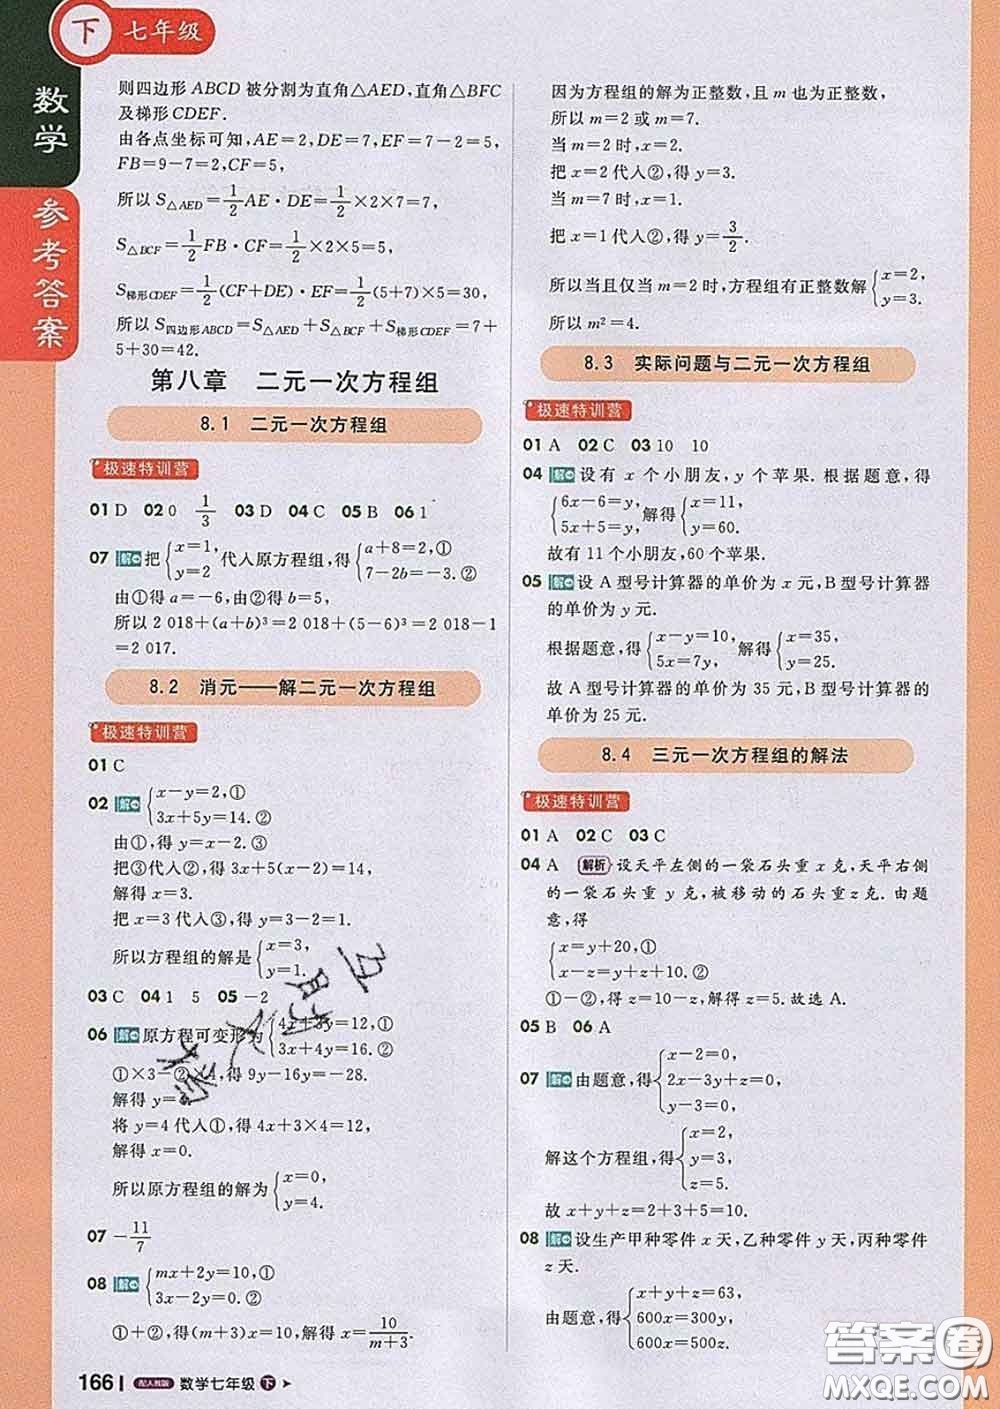 下 七年级
数学
参考答案
则四边形ABCD被分割为直角△AED,直角△BFC
及梯形CDEF.
由各点坐标可知,AE=2,DE=7,EF=7-2=5,
FB=9-7=2,CF=5,
所以S△AED=1/2AE·DE=1/2×2×7=7,
S△BCF=1/2FB·CF=1/2×2×5=5,
S梯形CDEF=1/2(CF+DE)·EF=1/2(5+7)×5=30,
所以S四边形ABCD=S△AED+S△BCF+S梯形CDEF=7+
5+30=42.
第八章 二元一次方程组
8.1 二元一次方程组
极速特训营
01 D 02 0 1/3 03 D 04 C 05 B 06 1
07 解 把{x=1, y=2 代入原方程组,得{a+8=2,① 7-2b=-3.②
由①得a=-6,由②得b=5,
所以2 018+(a+b)³=2 018+(5-6)³=2 018-1
=2 017.
8.2 消元——解二元一次方程组
极速特训营
01 C
02 解 {x-y=2,① 3x+5y=14.②
由①,得y=x-2.③
把③代入②,得3x+5(x-2)=14.
解得x=3.
把x=3代入③,得y=3-2=1.
所以方程组的解是{x=3, y=1.
03 C 04 1 5 05 -2
06 解 原方程可变形为{4x+3y=12,① 3x+4y=16.②
①×3-②×4,得9y-16y=-28.
解得y=
将y=4代入①,得4x+3×4=12,
解得x=0.
所以原方程组的解为{x=0, y=4.
07 -11/7
08 解 {mx+2y=10,① 3x-2y=0.②
①+②,得(m+3)x=10,解得x=10/(m+3).
166 配人教版 数学七年级 下
因为方程组的解为正整数,且m也为正整数,
所以m=2或m=7.
当m=2时,x=2.
把x=2代入②,得y=3.
当m=7时,x=1.
把x=1代入②,得y=3/2.
所以当且仅当m=2时,方程组有正整数解{x=2, y=3.
所以m²=4.
8.3 实际问题与二元一次方程组
极速特训营
01 A 02 C 03 10 10
04 解 设有x个小朋友,y个苹果.根据题意,得
{6x-6=y, 5x+5=y, 解得{x=11, y=60.
故有11个小朋友,60个苹果.
05 解 设A型号计算器的单价为x元,B型号计算器
的单价为y元.
根据题意,得{x-y=10, 5x=7y, 解得{x=35, y=25.
故A型号计算器的单价为35元,B型号计算器的
单价为25元.
8.4 三元一次方程组的解法
极速特训营
01 A 02 C 03 C
04 A 解析 设天平左侧的一袋石头重x克,天平右侧
的一袋石头重y克,被移动的石头重z克.由题
意,得
{x=y+20,① x-z=y+z+10.②
①-②,得z=10-z,解得z=5.故选A.
05 B 06 A
07 解 由题意,得{x-2=0, 2x-3y+z=0, y-3=0,
解这个方程组,得{x=2, y=3, z=5.
故x+y+z=2+3+5=10.
08 解 设生产甲种零件x天,乙种零件y天,丙种零件
z天.
由题意,得{x+y+z=63, 600x=300y, 600x=500z.
答案圈
MXQE.COM